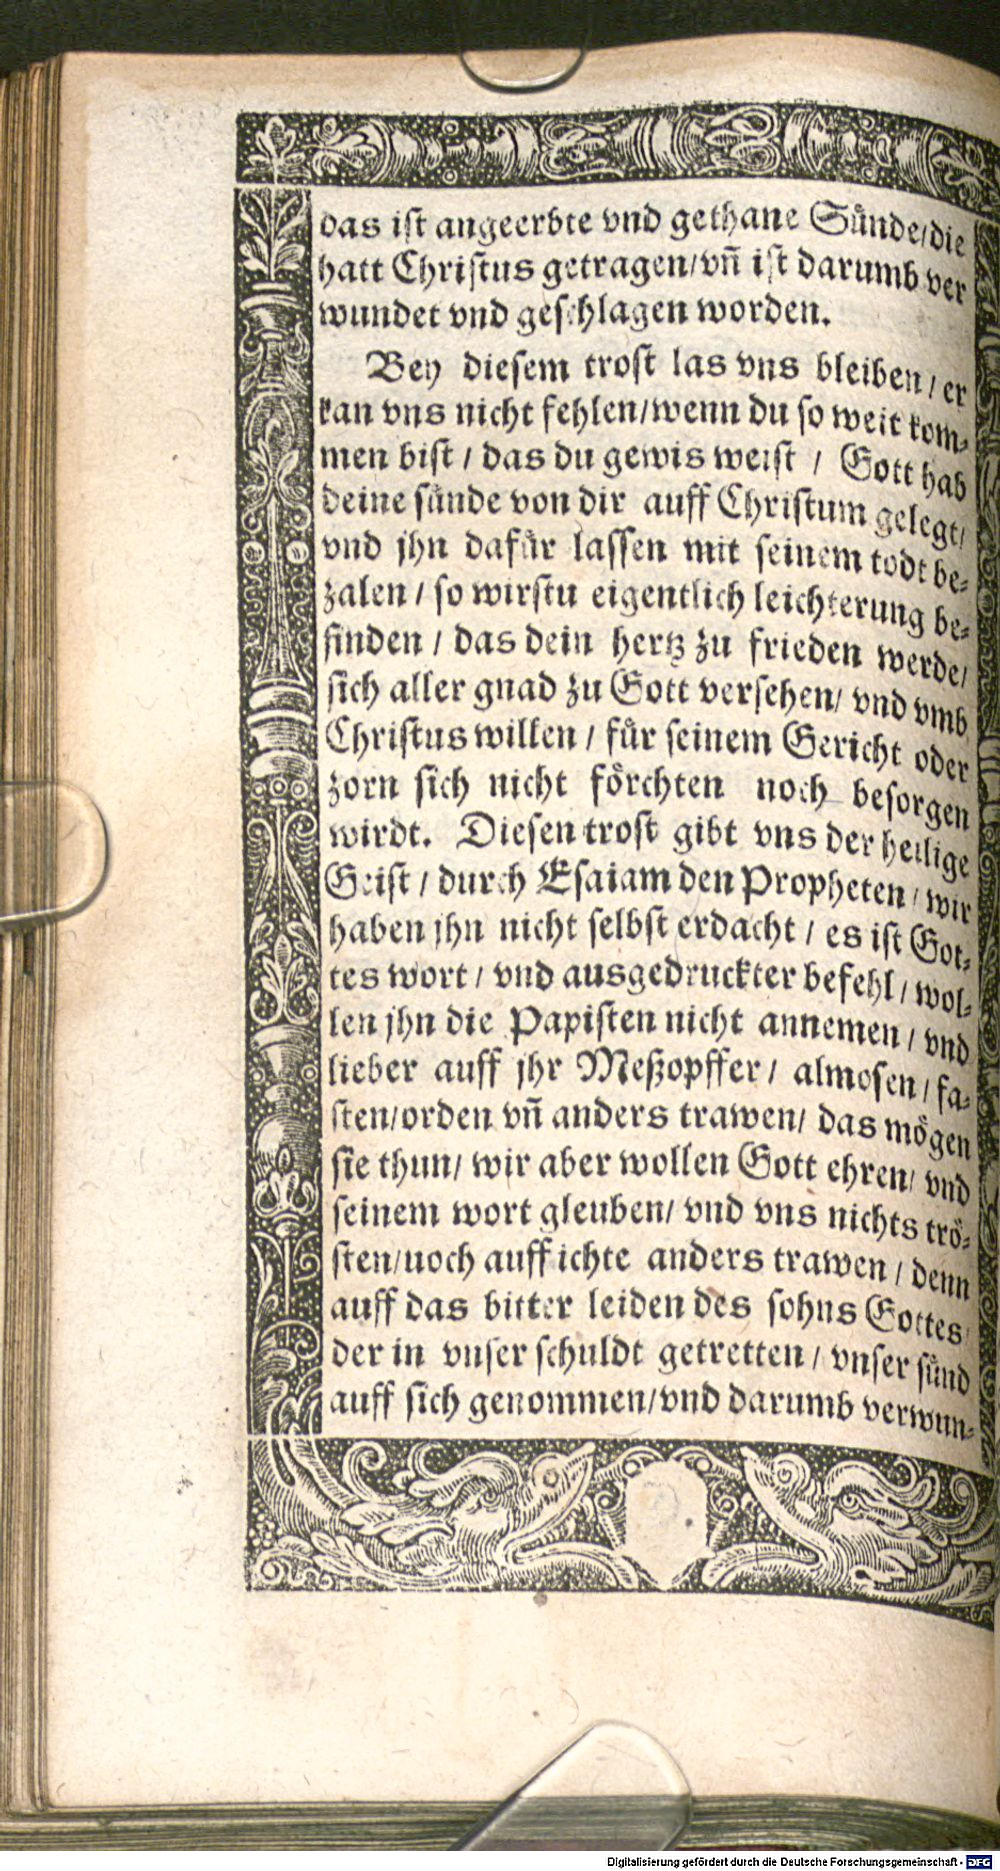 das ist angeerbte vnd gethane Sünde/die
hatt Christus getragen/vñ ist darumb ver
wundet vnd geschlagen worden.
Bey diesem trost las vns bleiben/ er
kan vns nicht fehlen/wenn du so weit kom⸗
men bist/ das du gewis weist / Gott hab
deine sünde von dir auff Christum gelegt/
vnd jhn dafür lassen mit seinem todt be⸗
zalen/ so wirstu eigentlich leichterung be⸗
finden / das dein hertz zu frieden werde/
sich aller gnad zu Gott versehen/ vnd vmb
Christus willen / für seinem Gericht oder
zorn sich nicht förchten noch besorgen
wirdt. Diesen trost gibt vns der heilige
Geist / durch Esaiam den Propheten/ wir
haben jhn nicht selbst erdacht / es ist Got⸗
tes wort/ vnd ausgedruckter befehl/ wol⸗
len jhn die Papisten nicht annemen / vnd
lieber auff jhr Meßopffer/ almosen/ fa⸗
sten/orden vñ anders trawen/ das mögen
sie thun/ wir aber wollen Gott ehren/ vnd
seinem wort gleuben/ vnd vns nichts trö⸗
sten/noch auff ichte anders trawen / denn
auff das bitter leiden des sohns Gottes/
der in vnser schuldt getretten / vnser sünd
auff sich genommen/vnd darumb verwun⸗
Digitalisierung gefördert durch die Deutsche Forschungsgemeinschaft - DFG